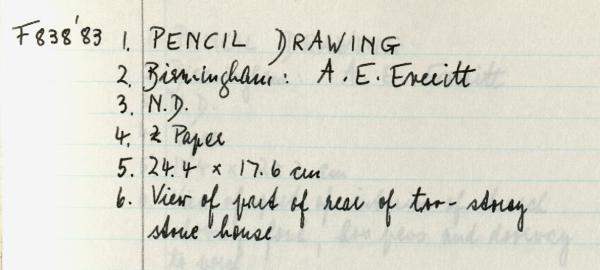 F838'83 1. PENCIL DRAWING
2. Birmingham: A. E. Everitt
3. N.D.
4. Paper
5. 24.4 x 17.6 cm
6. View of part of rear of two-storey
stone house